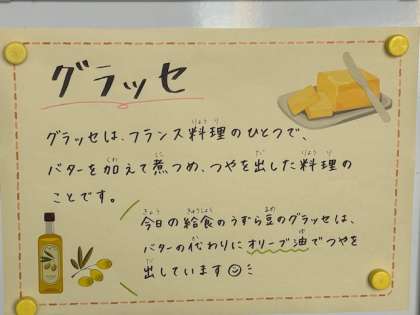 グラッセ
グラッセは、フランス料理のひとつで、
バターを加えて煮つめ、つやを出した料理の
ことです。
今日の給食のうずら豆のグラッセは、
バターの代わりにオリーブ油でつやを
出しています